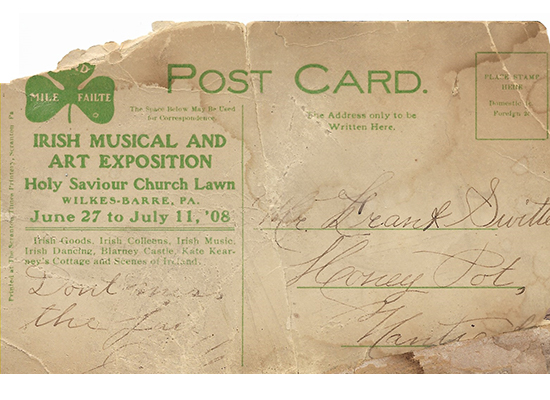 MILE FAILTE
POST CARD.
The Space Below May Be Used
for Correspondence.
The Address only to be
Written Here.
PLACE STAMP
HERE
Domestic
Foreign
IRISH MUSICAL AND
ART EXPOSITION
Holy Saviour Church Lawn
WILKES-BARRE, PA.
June 27 to July 11, '08
Irish Goods, Irish Colleens, Irish Music,
Irish Dancing, Blarney Castle, Kate Kear-
ney's Cottage and Scenes of Ireland.
Printed at The Scranton Times Printery, Scranton Pa
Dont miss
the
Mr. Frank
Honey Pot,